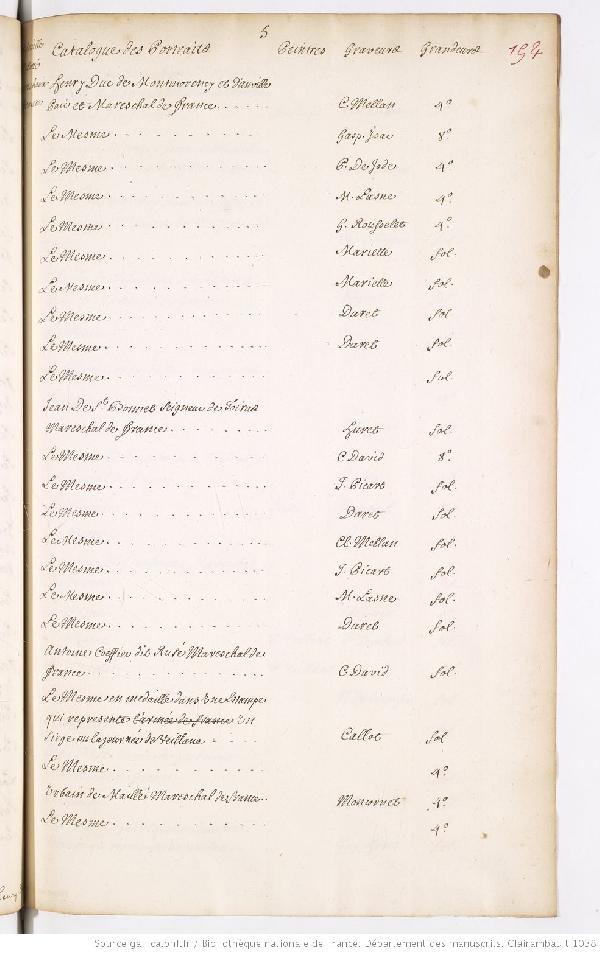 5
Catalogue des Portraits Peintres Graveurs Grandeurs 154
Henry Duc de Montmorency et Damville
Pair et Mareschal de France C. Mellan 4º
Le Mesme Gasp. Isac 8º
Le Mesme P. De Jode 4º
Le Mesme M. Lasne 4º
Le Mesme G. Rousselet 4º
Le Mesme Mariette fol.
Le Mesme Mariette fol.
Le Mesme Daret fol.
Le Mesme Daret fol.
Le Mesme fol.
Jean De St Bonnet Seigneur de Toiras
Mareschal de France Huret fol.
Le Mesme C. David 8º
Le Mesme J. Picart fol.
Le Mesme Daret fol.
Le Mesme Cl. Mellan fol.
Le Mesme J. Picart fol.
Le Mesme M. Lasne fol.
Le Mesme Daret fol.
Antoine Coeffier dit Ruzé Mareschal de
France C. David fol.
Le Mesme en medaille dans une Estampe
qui represente l'armée de France un
siege ou la journée de Veillane Callot fol
Le Mesme 4º
Urbain de Maillé Mareschal de france Moncornet 4º
Le Mesme 4º
Source gallica.bnf.fr / Bibliothèque nationale de France. Département des manuscrits. Clairambault 1038